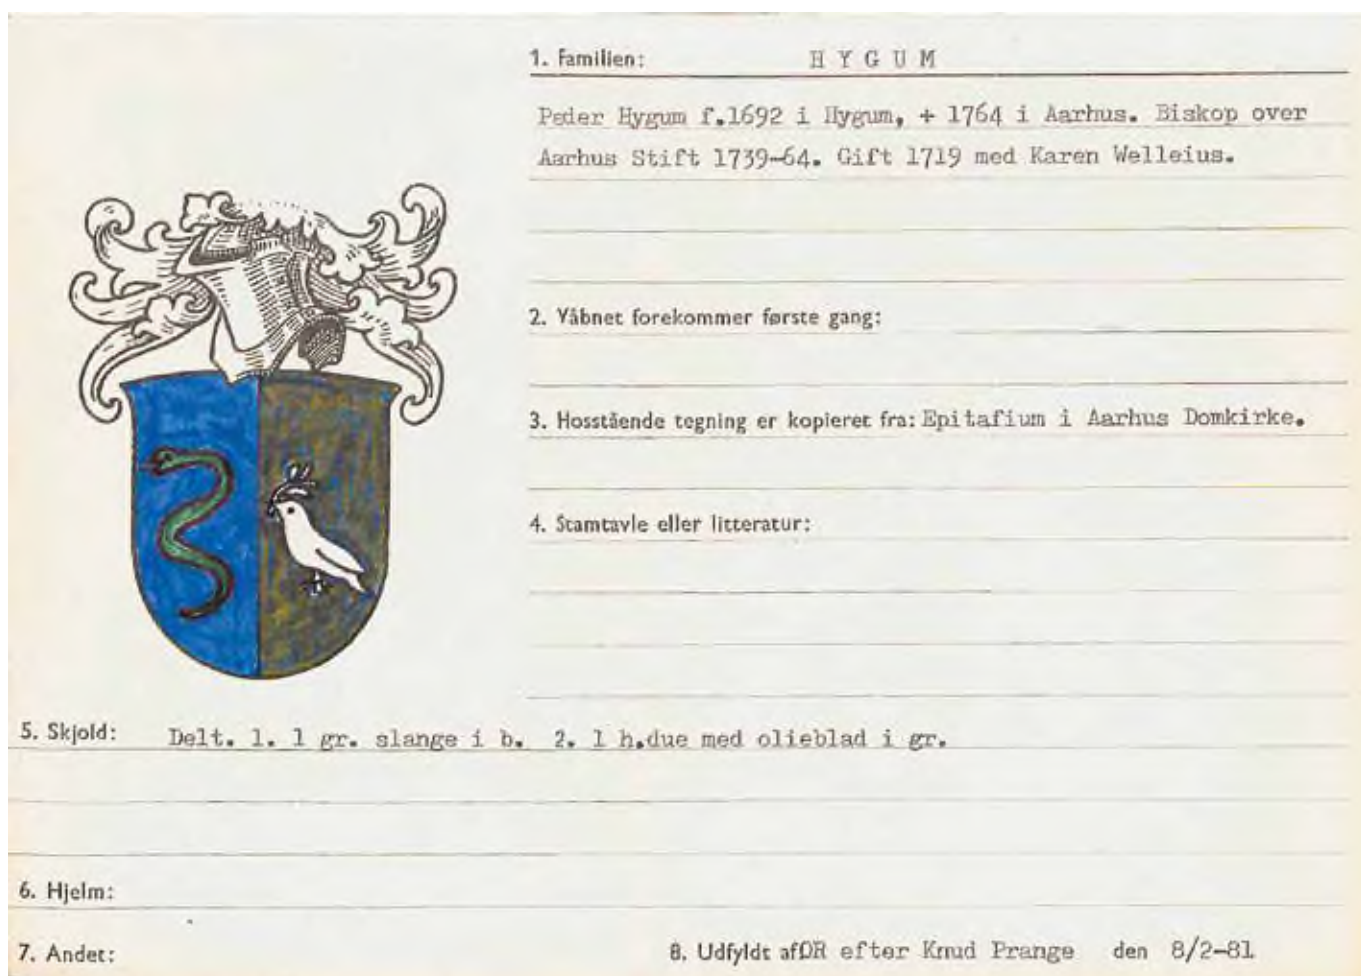 1. Familien: HYGUM
Peder Hygum f.1692 i Hygum, + 1764 i Aarhus. Biskop over
Aarhus Stift 1739-64. Gift 1719 med Karen Welleius.
2. Våbnet forekommer første gang:
3. Hosstående tegning er kopieret fra: Epitafium i Aarhus Domkirke.
4. Stamtavle eller litteratur:
5. Skjold: Delt. 1. 1 gr. slange i b. 2. 1 h.due med olieblad i gr.
6. Hjelm:
7. Andet:
8. Udfyldt af OR efter Knud Prange den 8/2-81